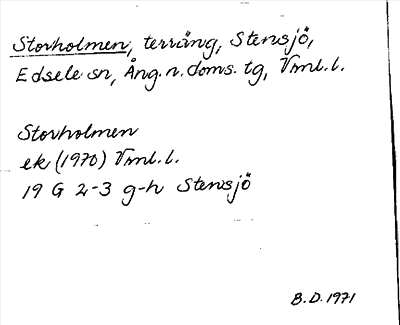 Storholmen, terräng, Stensjö,
Edsele sn, Ång. n. doms. tg, Vrnl. l.
Storholmen
ek (1970) Vrnl. l.
19 G 2-3 g-h Stensjö
B.D. 1971